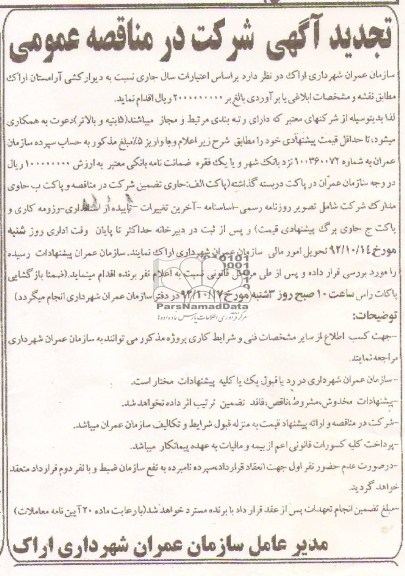 تجدید آگهی شرکت در مناقصه عمومی
سازمان عمران شهرداری اراک در نظر دارد براساس اعتبارات سال جاری نسبت به دیوارکشی آرامستان اراک
مطابق نقشه و مشخصات ابلاغی با برآوردی بالغ بر ۲۰۰۰۰۰۰۰۰۰ ریال اقدام نماید.
لذا بدینوسیله از شرکتهای معتبر که دارای رتبه بندی مرتبط و مجاز میباشند(۵ابنیه و بالاتر)دعوت به همکاری
میشود، تا حداقل قیمت پیشنهادی خود را مطابق شرح زیر اعلام وجا واریز ۵٪مبلغ مذکور به حساب سپرده سازمان
عمران به شماره ۱۰۰۳۶۰۰۷۲ نزد بانک شهر و یا یک فقره ضمانت نامه بانکی معتبر به ارزش ۱۰۰۰۰۰۰۰۰ ریال
در وجه سازمان عمران در پاکت دربسته گذاشته (پاکت الف:حاوی تضمین شرکت در مناقصه و پاکت ب حاوی
مدارک شرکت شامل تصویر روزنامه رسمی -اساسنامه -آخرین تغییرات -تاییده از استانداری-رزومه کاری و
پاکت ج حاوی برگ پیشنهادی قیمت) و پس از ثبت در دبیرخانه حداکثر تا پایان وقت اداری روز شنبه
مورخ ۹۲/۱۰/۱۴ تحویل امور مالی سازمان عمران شهرداری اراک نمایند. سازمان عمران پیشنهادات رسیده
را مورد بررسی قرار داده و پس از طی مراحل قانونی نسبت به اعلام نفر برنده اقدام مینماید.(ضمنا بازگشایی
پاکات راس ساعت ۱۰ صبح روز ۳شنبه مورخ ۹۲/۱۰/۱۷ در دفتر سازمان عمران شهرداری انجام میگردد)
پارس نماد داده ها
ParsNamadData
توضیحات:
-جهت کسب اطلاع از سایر مشخصات فنی و شرایط کاری پروژه مذکور می توانند به سازمان عمران شهرداری
مراجعه نمایند
-سازمان عمران شهرداری در رد یا قبول یک یا کلیه پیشنهادات مختار است.
-پیشنهادات مخدوش،مشروط،ناقص،فاقد تضمین ترتیب اثر داده نخواهد شد.
-شرکت در مناقصه و ارائه پیشنهاد قیمت به منزله قبول شرایط و تکالیف سازمان عمران میباشد.
-پرداخت کلیه کسورات قانونی اعم از بیمه و مالیات به عهده پیمانکار میباشد.
-درصورت عدم حضور نفر اول جهت انعقاد قرارداد،سپرده نامبرده به نفع سازمان ضبط و با نفر دوم قرارداد منعقد
خواهد گردید.
-مبلغ تضمین انجام تعهدات پس از عقد قرار داد با برنده مسترد خواهد شد(بارعایت ماده ۲۰ آیین نامه معاملات)
مدیر عامل سازمان عمران شهرداری اراک